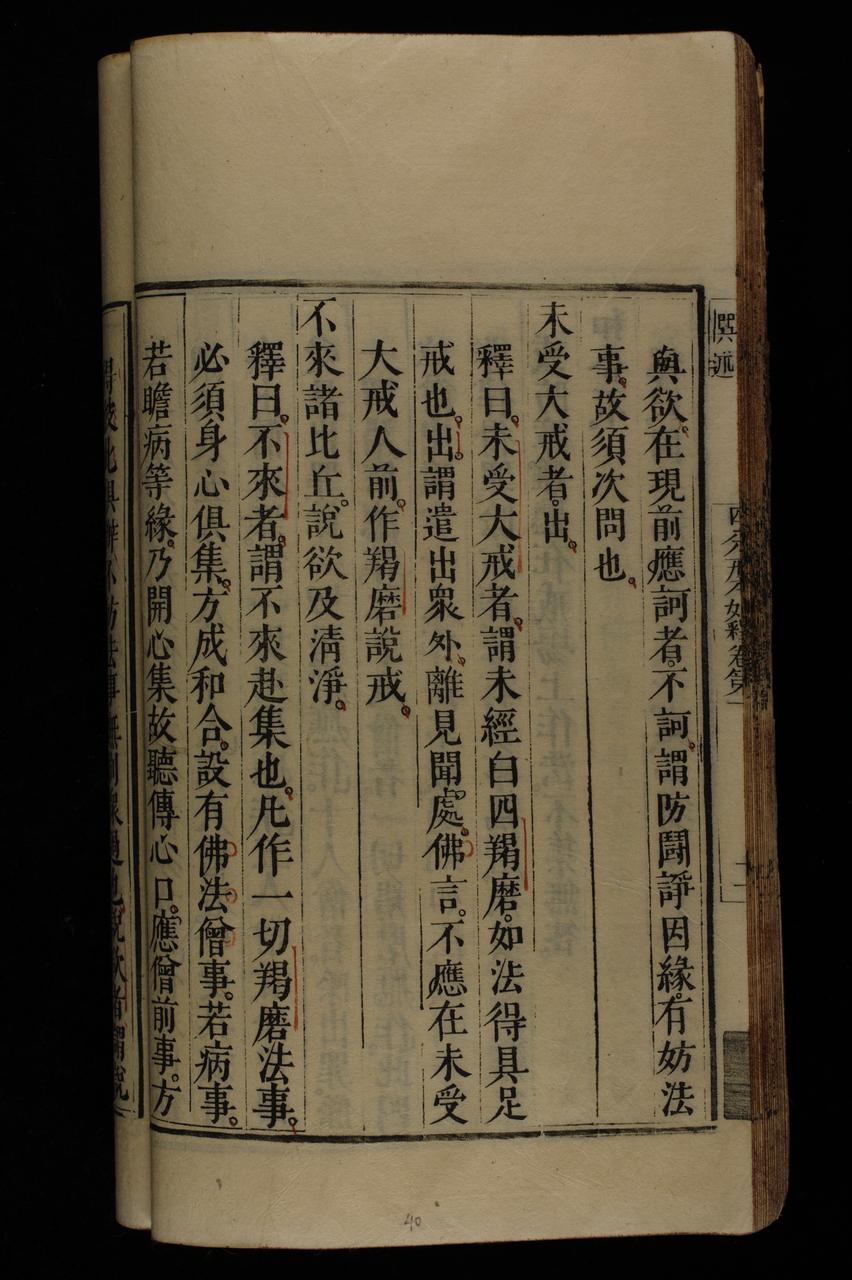 與欲在現前應訶者。不訶。謂防鬪諍因緣。有妨法
事。故須次問也。
未受大戒者。出。
釋曰。未受大戒者。謂未經白四羯磨。如法得具足
戒也。出。謂遣出衆外。離見聞處。佛言。不應在未受
大戒人前。作羯磨說戒。
不來諸比丘。說欲及清淨。
釋曰。不來者。謂不來赴集也。凡作一切羯磨法事。
必須身心俱集。方成和合。設有佛法僧事。若病事。
若瞻病等緣。乃開心集。故聽傳心口。應僧前事。方
四分戒本如釋卷第一
40